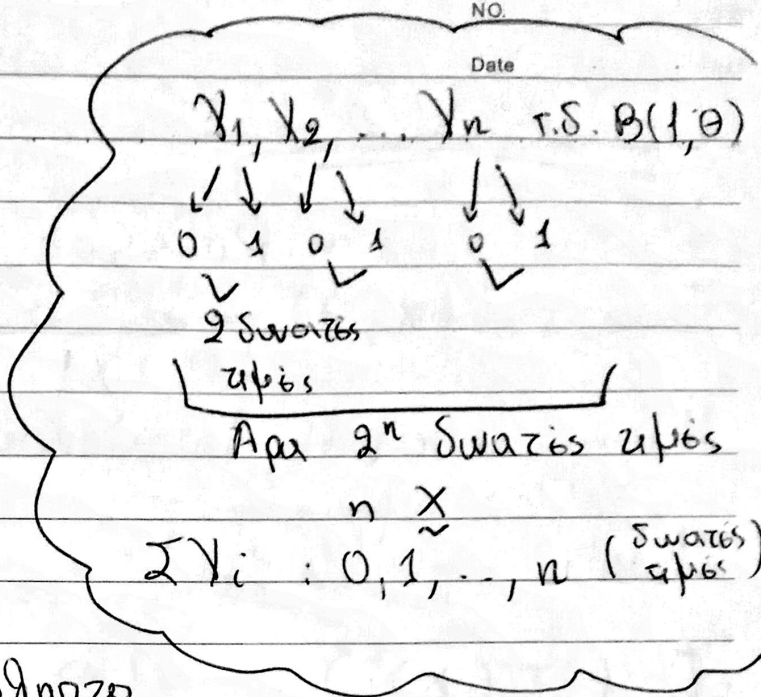 NO.
Date
Y1, Y2, ... Yn τ.δ. B(1,θ)
0 1 0 1 0 1
2 δυνατές
τιμές
Άρα 2ⁿ δυνατές τιμές
η X̰
ΣYi : 0, 1, .., n (δυνατές τιμές)